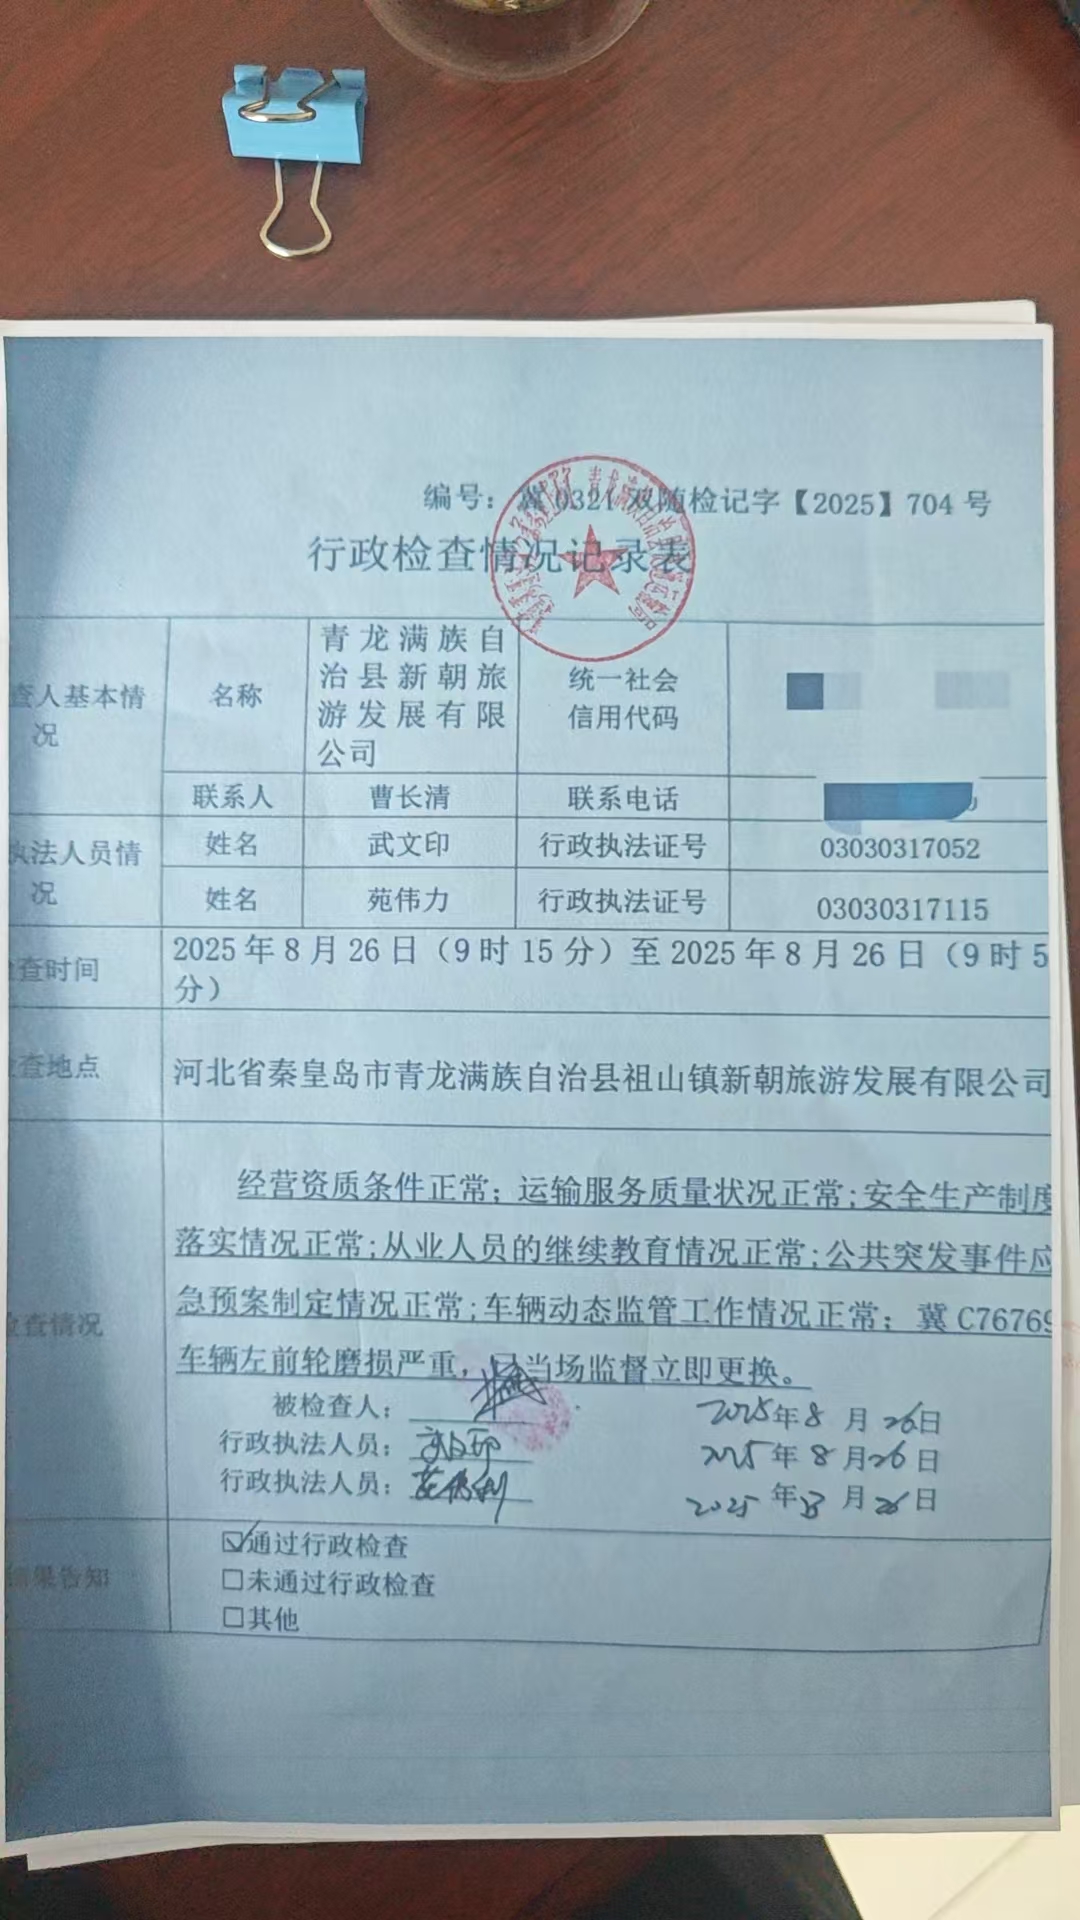 编号：冀 0321 双随检记字【2025】704 号
行政检查情况记录表
查人基本情
况
名称
青龙满族自
治县新朝旅
游发展有限
公司
统一社会
信用代码
联系人
曹长清
联系电话
执法人员情
况
姓名
武文印
行政执法证号
03030317052
姓名
苑伟力
行政执法证号
03030317115
查时间
2025 年 8 月 26 日（9 时 15 分）至 2025 年 8 月 26 日（9 时 5
分）
查地点
河北省秦皇岛市青龙满族自治县祖山镇新朝旅游发展有限公司
查情况
经营资质条件正常；运输服务质量状况正常;安全生产制度
落实情况正常;从业人员的继续教育情况正常;公共突发事件应
急预案制定情况正常;车辆动态监管工作情况正常；冀 C76769
车辆左前轮磨损严重，已当场监督立即更换。
被检查人：
2025年 8 月 26日
行政执法人员：
2025 年 8 月 26 日
行政执法人员：
2025 年 8 月 26 日
结果告知
☑通过行政检查
☐未通过行政检查
☐其他